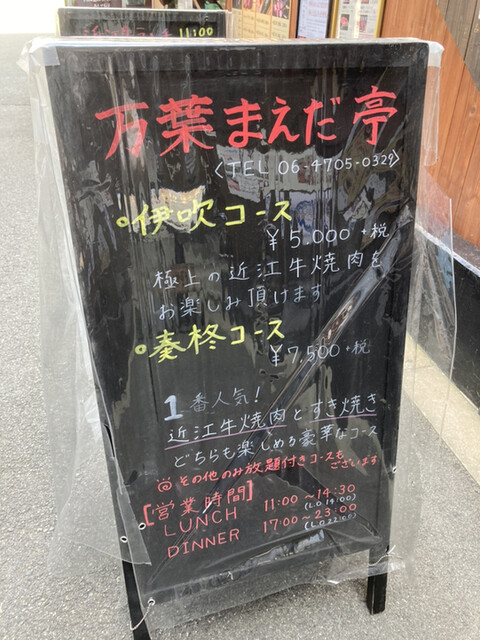 11:00
万葉まえだ亭
〈TEL 06-4705-0329〉
伊吹コース
￥5.000+税
極上の近江牛焼肉を
お楽しみ頂けます
秦柊コース
￥7,500+税
1番人気!
近江牛焼肉とすき焼き
どちらも楽しめる豪華なコース
その他のみ放題付きコースも
ございます
[営業時間]
LUNCH 11:00～14:30
(L.O 14:00)
DINNER 17:00～23:00
(L.O 22:00)